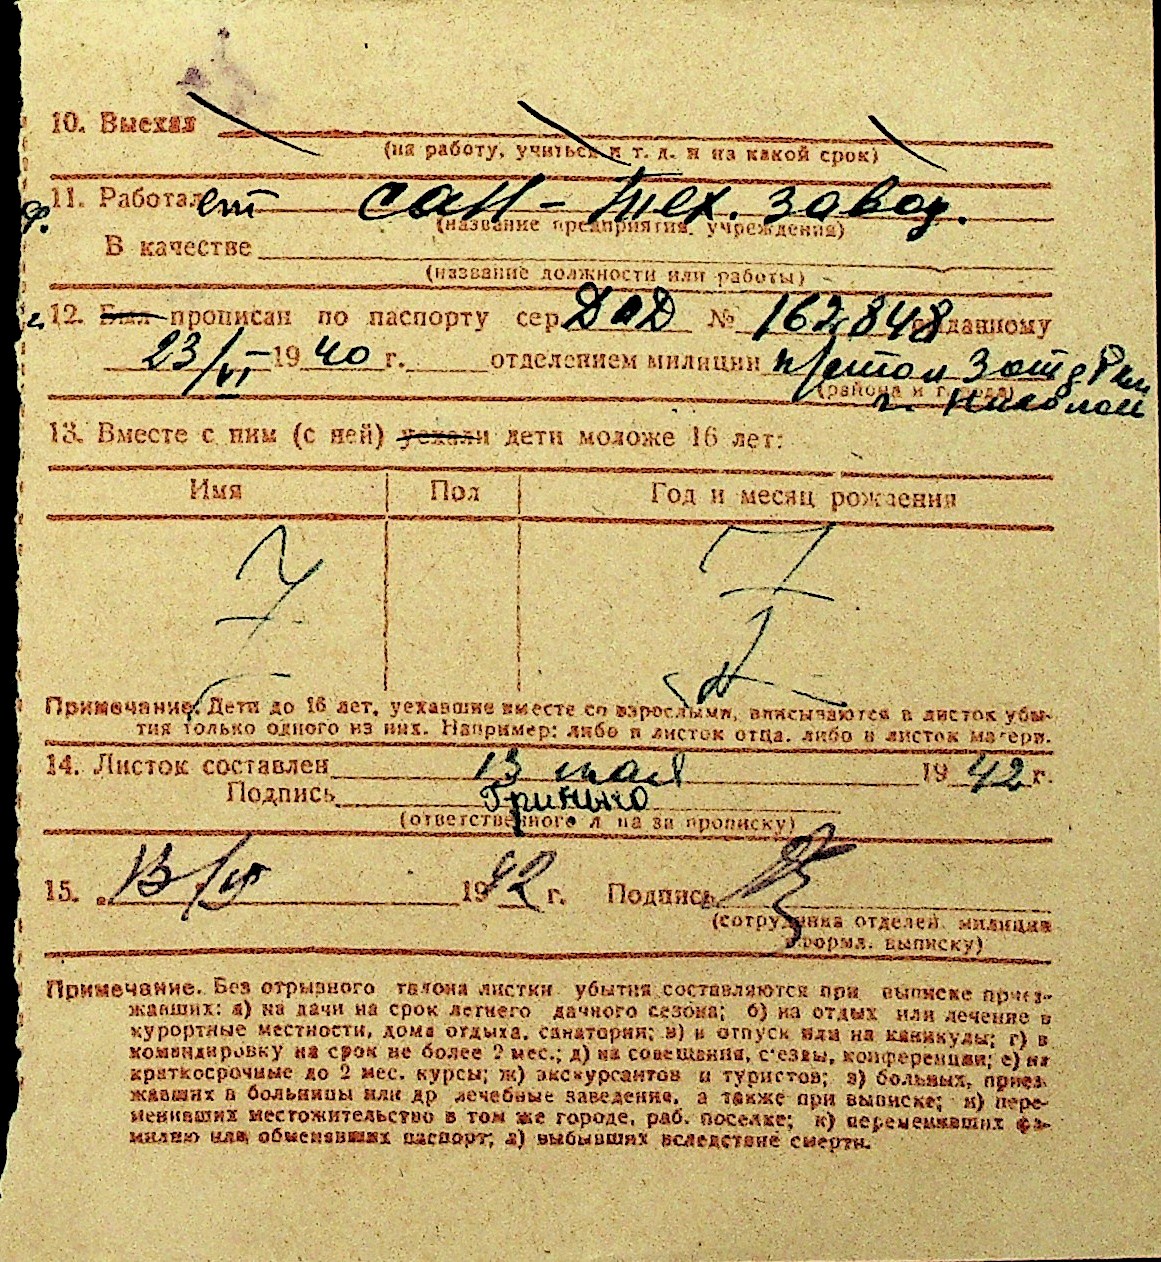 10. Выехал
(на работу, учиться и т. д. и на какой срок)
11. Работает сан-тех. завод.
(название предприятия, учреждения)
В качестве
(название должности или работы)
12. Был прописан по паспорту сер. № 162848 выданному
23/VI 1940 г. отделением милиции
(района и города)
г.
13. Вместе с ним (с ней) уехали дети моложе 16 лет:
Имя Пол Год и месяц рождения
Примечание. Дети до 16 лет, уехавшие вместе со взрослыми, вписываются в листок убы-
тия только одного из них. Например: либо в листок отца, либо в листок матери.
14. Листок составлен 13 мая 1942 г.
Подпись
(ответственного лица за прописку)
15. 13/V 1942 г. Подпись
(сотрудника отделен. милиции
оформл. выписку)
Примечание. Без отрывного талона листки убытия составляются при выписке приез-
жавших: а) на дачи на срок летнего дачного сезона; б) на отдых или лечение в
курортные местности, дома отдыха, санатории; в) в отпуск или на каникулы; г) в
командировку на срок не более 2 мес.; д) на совещания, с'езды, конференции; е) на
краткосрочные до 2 мес. курсы; ж) экскурсантов и туристов; з) больных, приез-
жавших в больницы или др лечебные заведения, а также при выписке; и) пере-
менивших местожительство в том же городе, раб. поселке; к) переменивших фа-
милию или обменявших паспорт; л) выбывших вследствие смерти.